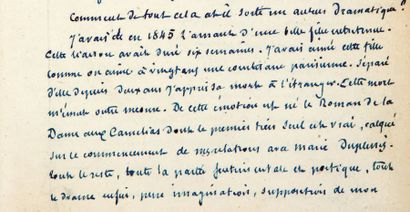 Comment de tout cela a-t-il sorti un auteur dramatique?
J'avais été en 1845 l'amant d'une belle fille entretenue.
Cette liaison avait duré six semaines. J'avais aimé cette fille
comme on aime à vingt ans une courtisane parisienne. Séparé
d'elle depuis deux ans j'appris sa mort à l'étranger. Cette mort
m'émut outre mesure. De cette émotion est né le Roman de la
Dame aux Camélias dont le premier tiers seul est vrai, calqué
sur le commencement de mes relations avec marie Duplessis.
tout le reste, toute la partie sentimentale et poétique, tout
le drame enfin, pure imagination, supposition de mon